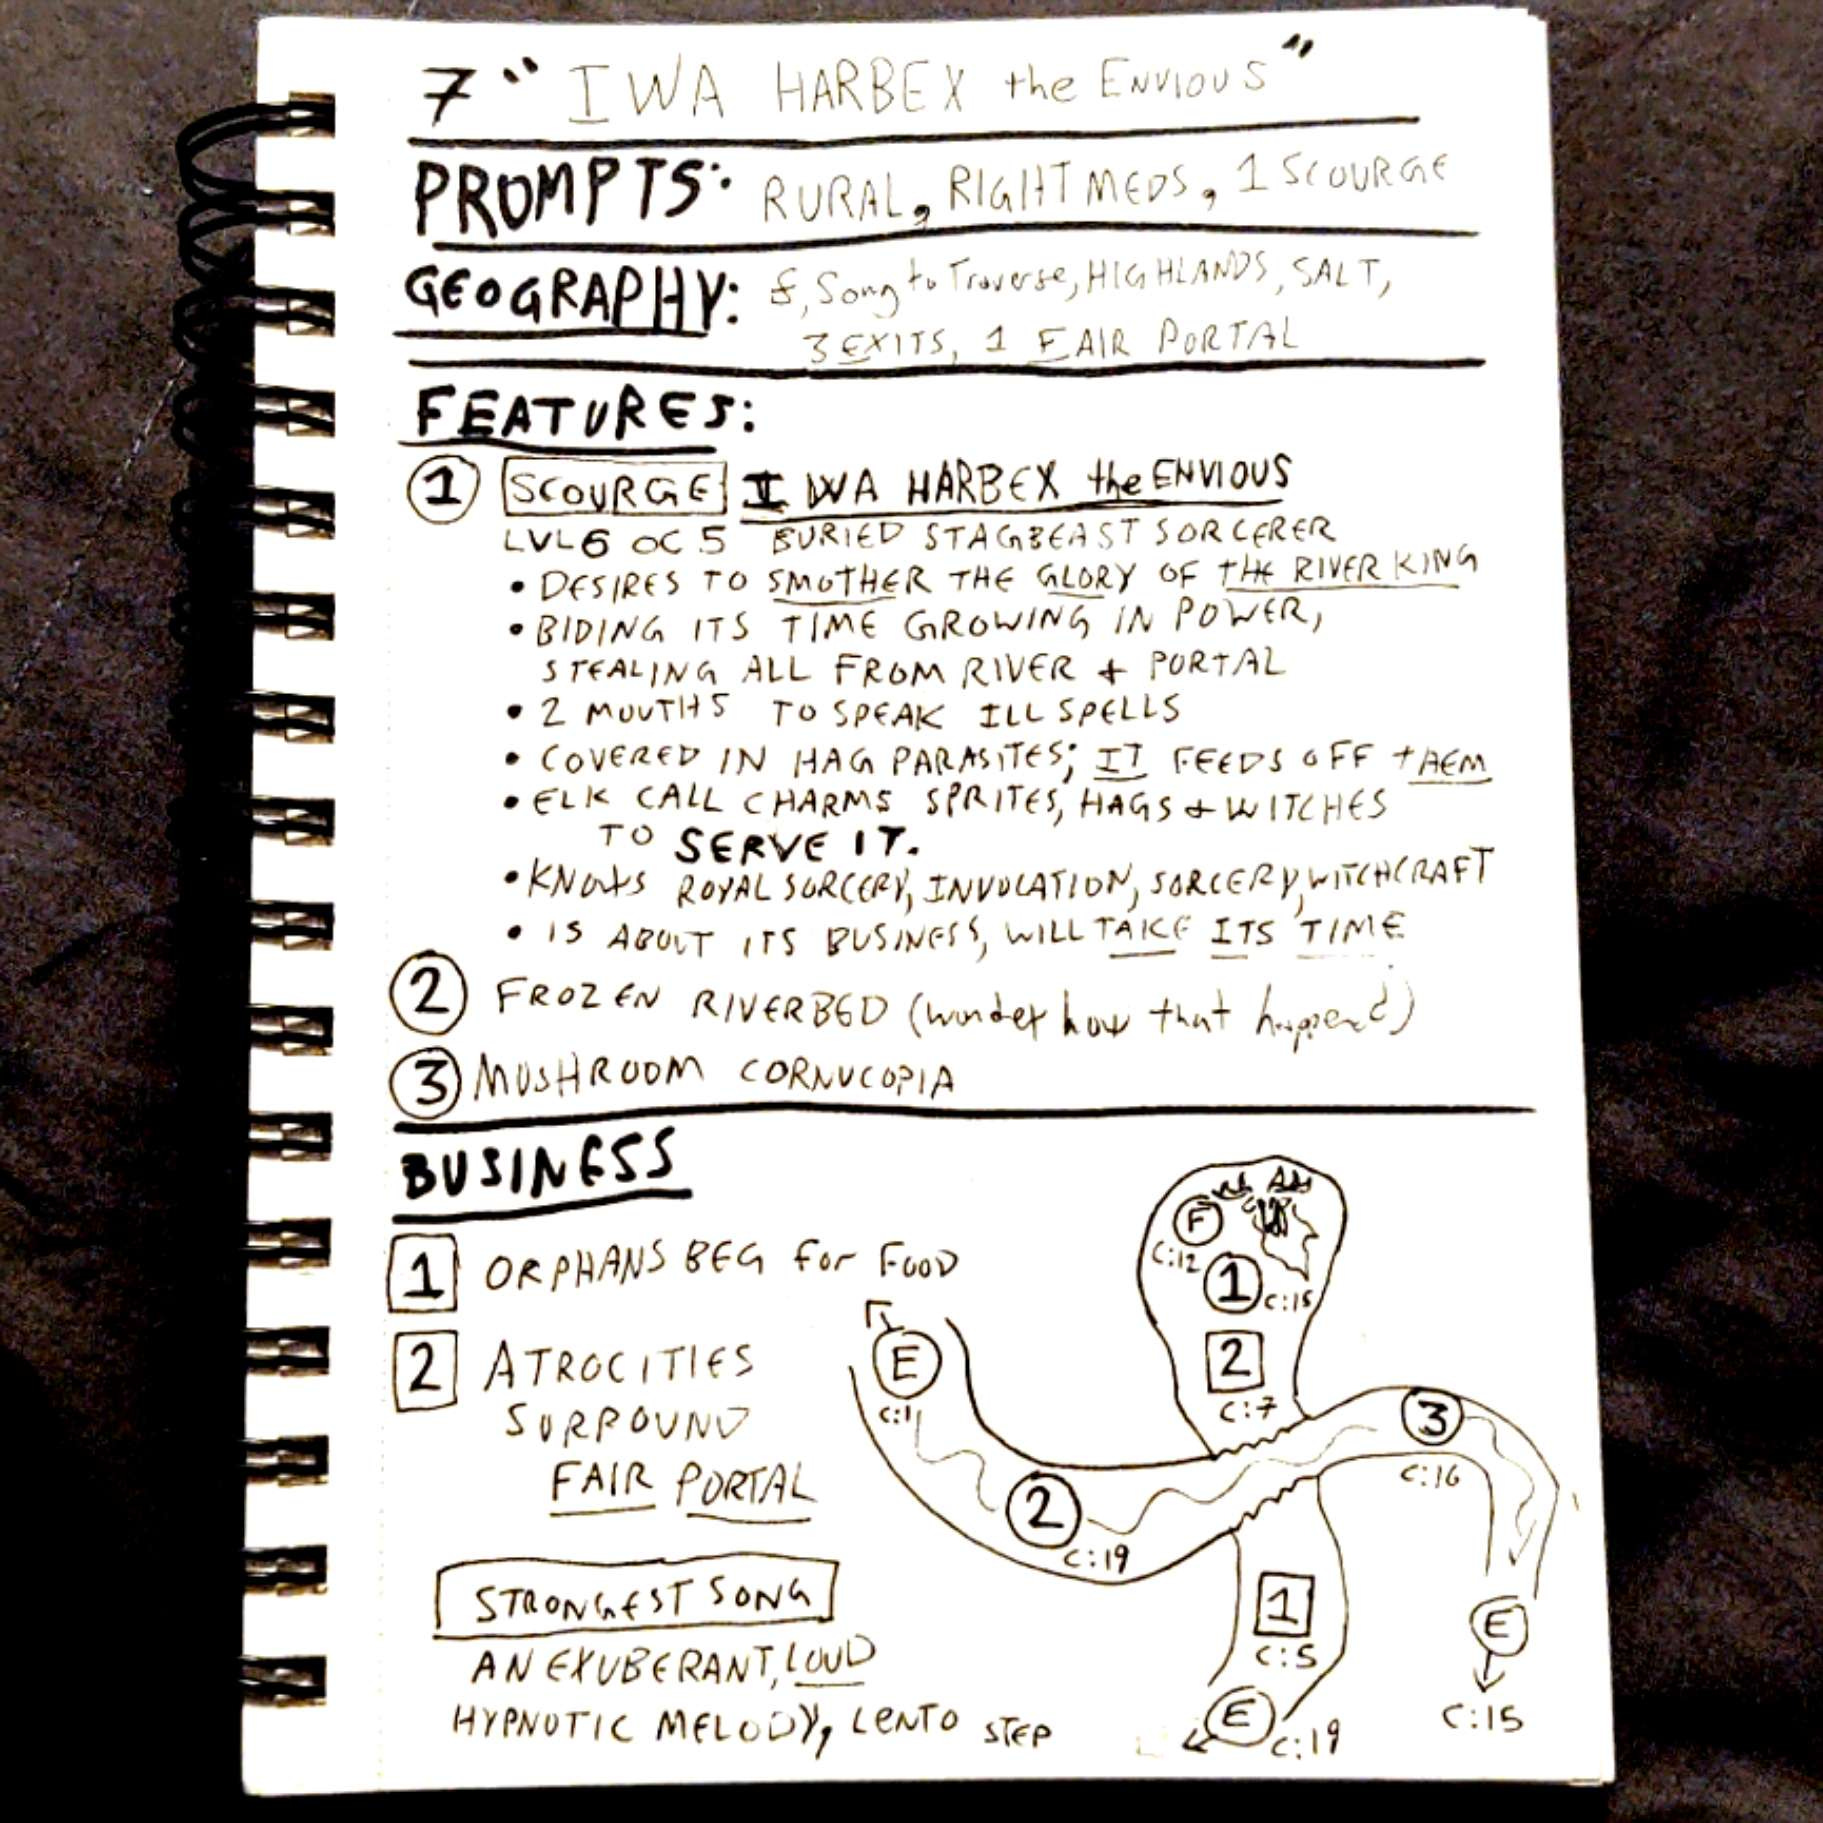 7 "IWA HARBEX the ENVIOUS"
PROMPTS: RURAL, RIGHT MEDS, 1 SCOURGE
GEOGRAPHY: &, Song to Traverse, HIGHLANDS, SALT,
3 EXITS, 1 FAIR PORTAL
FEATURES:
1 SCOURGE IWA HARBEX the ENVIOUS
LVL 6 OC 5 BURIED STAGBEAST SORCERER
• DESIRES TO SMOTHER THE GLORY OF THE RIVER KING
• BIDING ITS TIME GROWING IN POWER,
STEALING ALL FROM RIVER + PORTAL
• 2 MOUTHS TO SPEAK ILL SPELLS
• COVERED IN HAG PARASITES; IT FEEDS OFF THEM
• ELK CALL CHARMS SPRITES, HAGS & WITCHES
TO SERVE IT.
• KNOWS ROYAL SORCERY, INVOCATION, SORCERY, WITCHCRAFT
• IS ABOUT ITS BUSINESS, WILL TAKE ITS TIME
2 FROZEN RIVERBED (wonder how that happened)
3 MUSHROOM CORNUCOPIA
BUSINESS
1 ORPHANS BEG for FOOD
2 ATROCITIES
SURROUND
FAIR PORTAL
STRONGEST SONG
AN EXUBERANT, LOUD
HYPNOTIC MELODY, LENTO STEP
F
C:12
1 C:15
2
C:7
E
C:1
3
C:16
2
C:19
1
C:5
E
C:15
E C:19